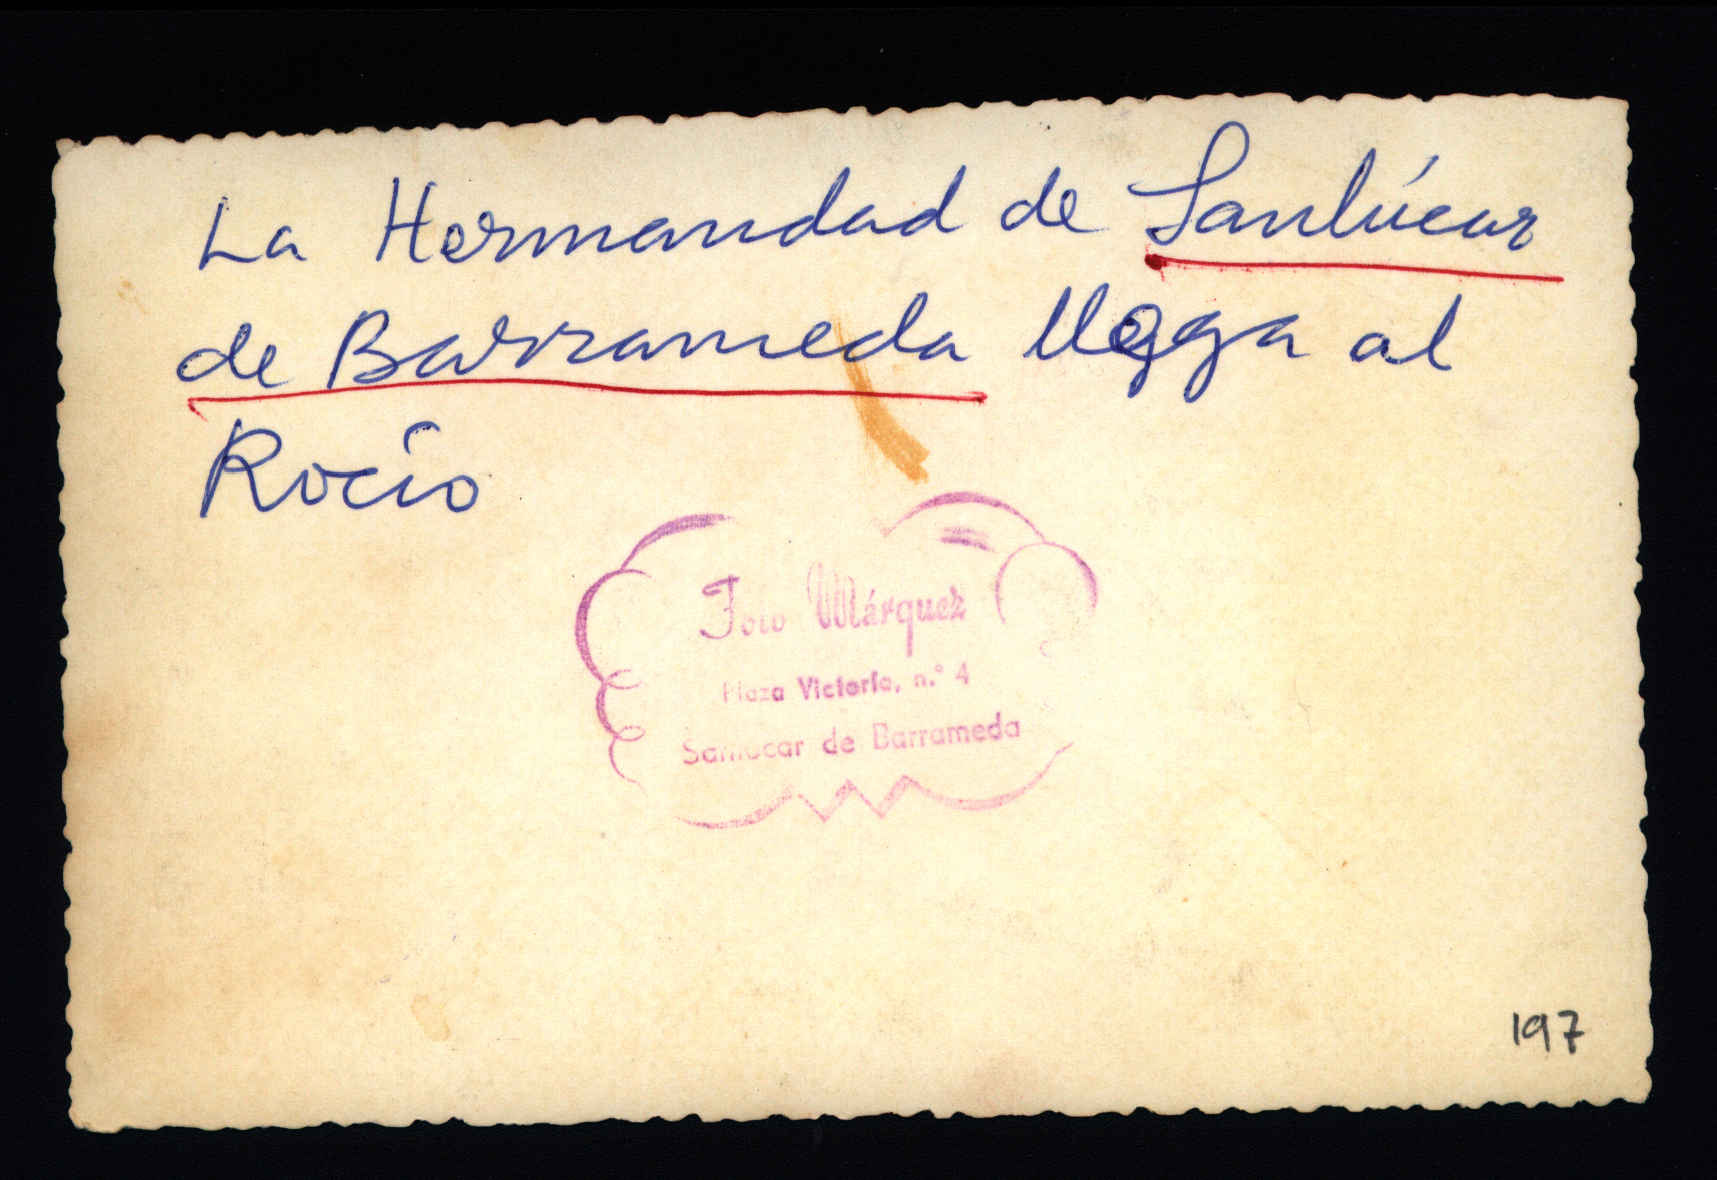 La Hermandad de Sanlúcar
de Barrameda llega al
Rocío
Foto Márquez
Plaza Victoria, n.º 4
Sanlucar de Barrameda
197